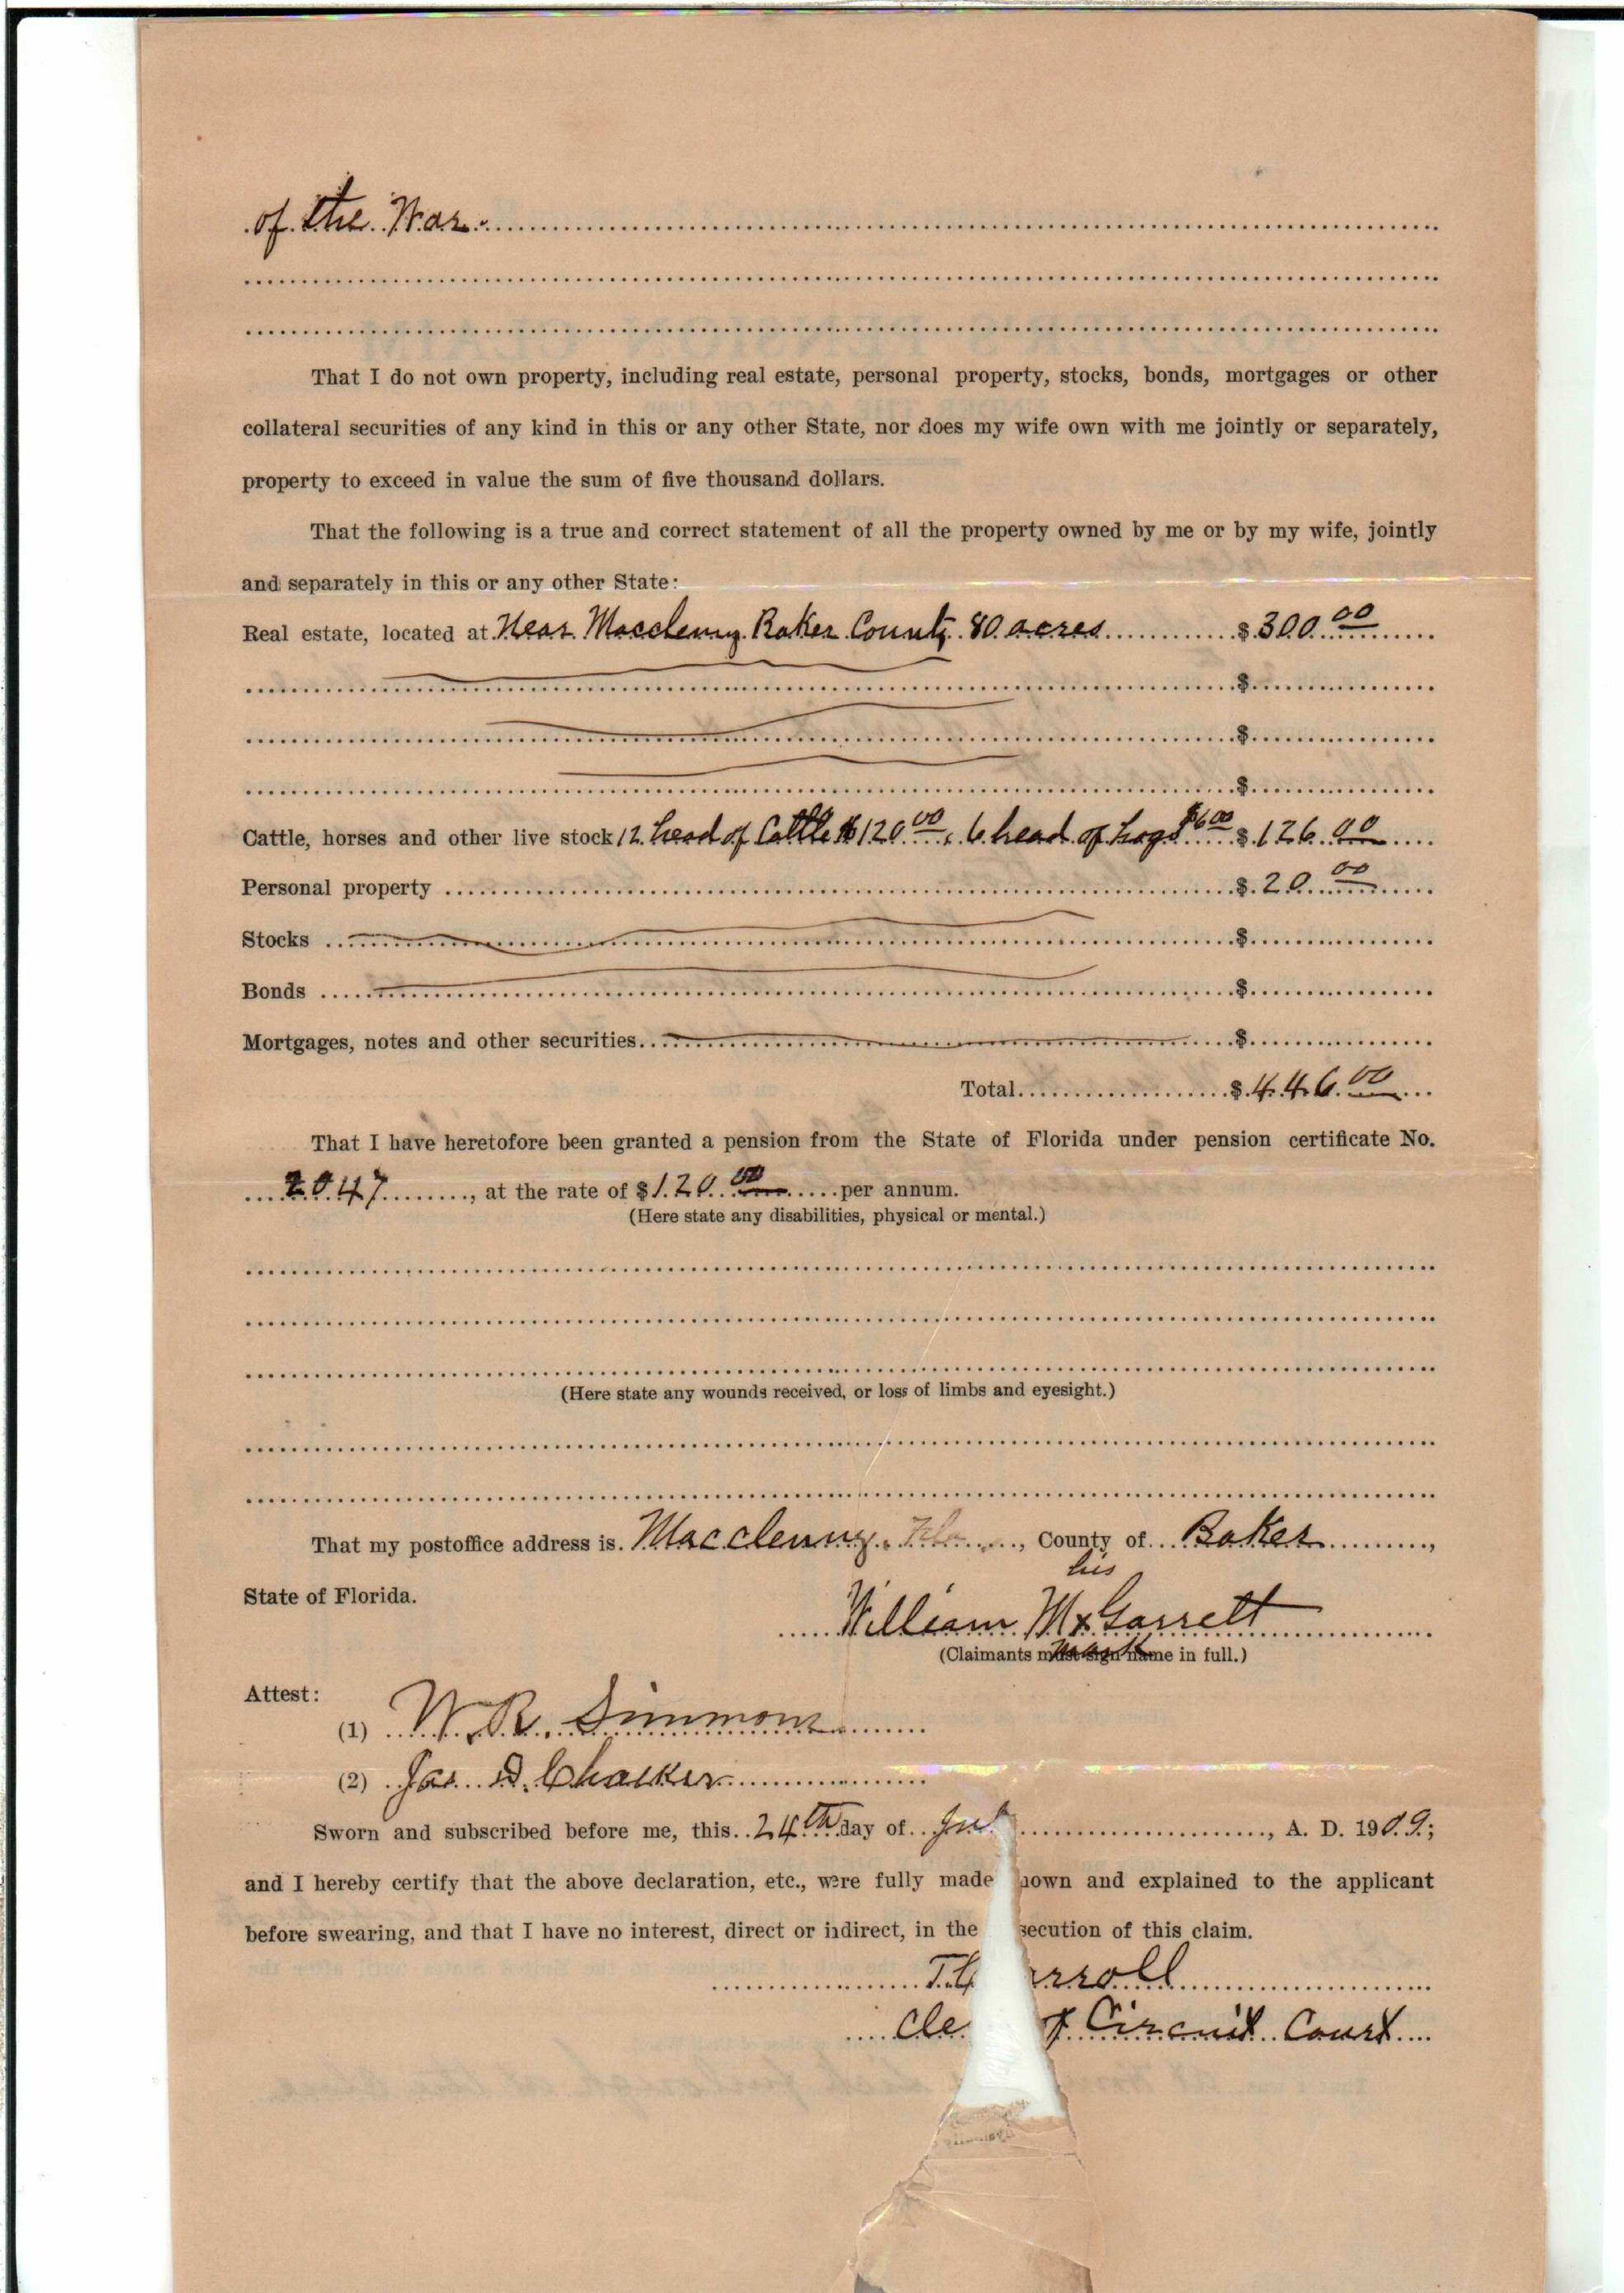 of the War.
That I do not own property, including real estate, personal property, stocks, bonds, mortgages or other
collateral securities of any kind in this or any other State, nor does my wife own with me jointly or separately,
property to exceed in value the sum of five thousand dollars.
That the following is a true and correct statement of all the property owned by me or by my wife, jointly
and separately in this or any other State:
Real estate, located at Near Macclenny Baker County 80 acres $ 300 00
$
$
$
Cattle, horses and other live stock 12 head of Cattle $120 00, 6 head of hogs $6 00 $ 126 00
Personal property $ 20 00
Stocks $
Bonds $
Mortgages, notes and other securities $
Total $ 446 00
That I have heretofore been granted a pension from the State of Florida under pension certificate No.
2047, at the rate of $ 120 00 per annum.
(Here state any disabilities, physical or mental.)
(Here state any wounds received, or loss of limbs and eyesight.)
That my postoffice address is Macclenny, Fla, County of Baker,
his
State of Florida.
William M x Garrett
mark
(Claimants must sign name in full.)
Attest:
(1) W. R. Simmons
(2) Jas. D. Chalker
Sworn and subscribed before me, this 24th day of , A. D. 1909;
and I hereby certify that the above declaration, etc., were fully made nown and explained to the applicant
before swearing, and that I have no interest, direct or indirect, in the secution of this claim.
rroll
Cle f Circuit Court